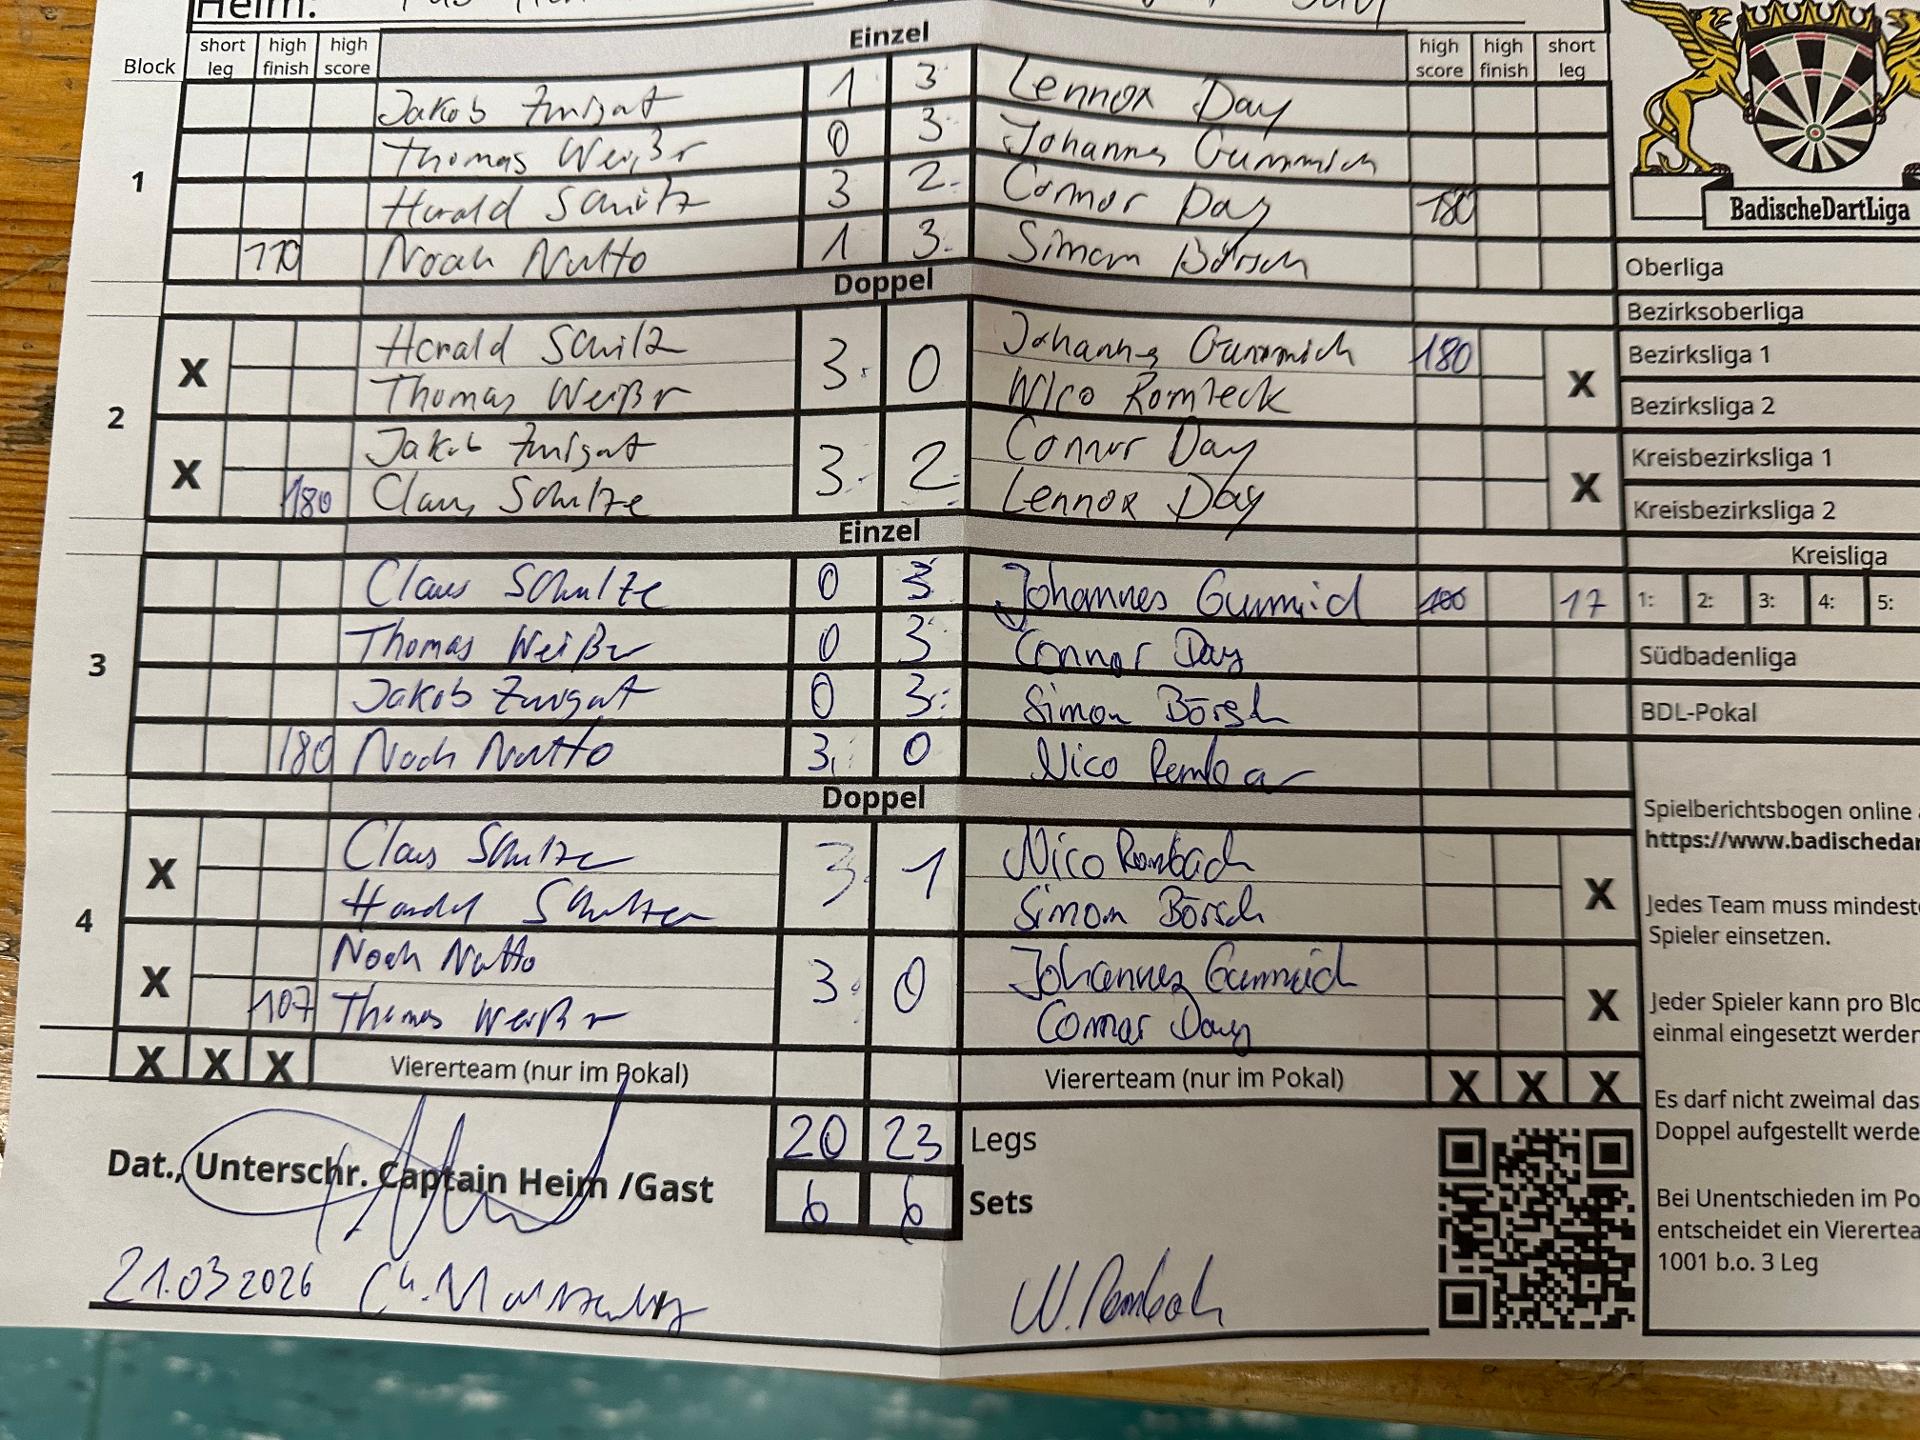 Heim:
Einzel
Block short leg high finish high score high score high finish short leg
Jakob 1 3 Lennox Day
Thomas Weißr 0 3 Johannes Gummich
1
Harald Schütz 3 2 Connor Day 180
110 Noah Nutto 1 3 Simon Börsch
BadischeDartLiga
Oberliga
Doppel
Bezirksoberliga
Harald Johannes Gummich 180
X 3 0 X
Thomas Weißr Nico
Bezirksliga 1
Bezirksliga 2
2
Jakob Connor Day
X 3 2 X
180 Claus Schulze Lennox Day
Kreisbezirksliga 1
Kreisbezirksliga 2
Einzel
Kreisliga
Claus Schulze 0 3 Johannes 17
1: 2: 3: 4: 5:
Thomas Weißer 0 3 Connor Day
Südbadenliga
3
Jakob 0 3 Simon Börsch
BDL-Pokal
180 Noah Nutto 3 0 Nico
Doppel
Spielberichtsbogen online
https://www.badischedar
Claus Schulze Nico Rombach
X 3 1 X
Simon Börsch
Jedes Team muss mindest
Spieler einsetzen.
4
Noah Nutto Johannes
X 3 0 X
107 Thomas Weißr Connor Day
Jeder Spieler kann pro Blo
einmal eingesetzt werden
X X X Viererteam (nur im Pokal) Viererteam (nur im Pokal) X X X
Es darf nicht zweimal das
Doppel aufgestellt werde
20 23 Legs
Dat., Unterschr. Captain Heim /Gast
6 6 Sets
Bei Unentschieden im Po
entscheidet ein Vierertea
1001 b.o. 3 Leg
21.03.2026